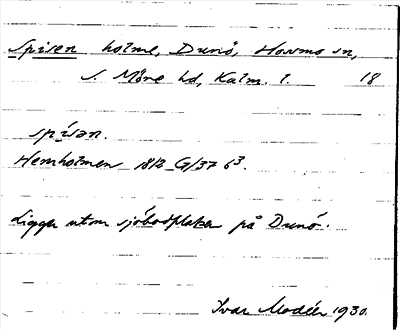 Spisen holme, Dunö, Hossmo sn,
S. Möre hd, Kalm. l. 18
spi̇̄san.
Hemholmen 1812 G/37 63.
Ligger utom sjöbodplatsen på Dunö.
Ivar Modéer 1930.